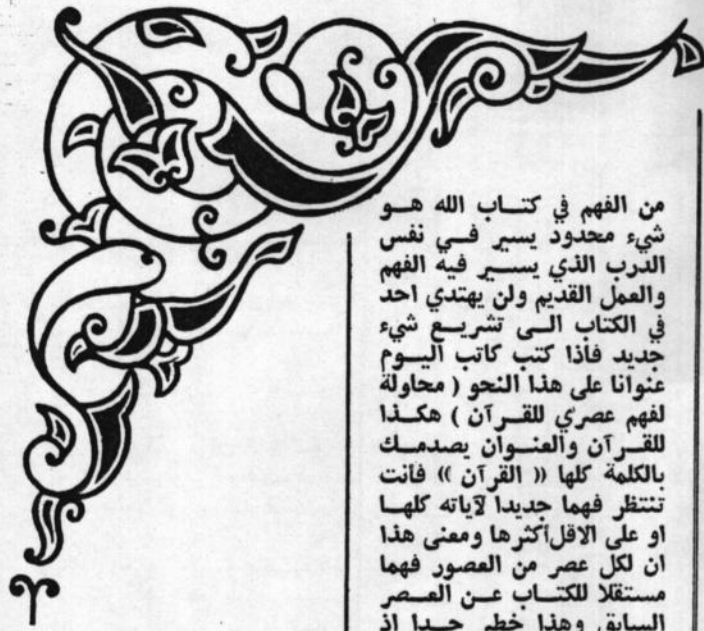 من الفهم في كتاب الله هو
شيء محدود يسير في نفس
الدرب الذي يسير فيه الفهم
والعمل القديم ولن يهتدي احد
في الكتاب الى تشريع شيء
جديد فاذا كتب كاتب اليوم
عنوانا على هذا النحو ( محاولة
لفهم عصري للقرآن ) هكذا
للقرآن والعنوان يصدمك
بالكلمة كلها (( القرآن )) فانت
تنتظر فهما جديدا لآياته كلها
او على الاقل أكثرها ومعنى هذا
ان لكل عصر من العصور فهما
مستقلا للكتاب عن العصر
السابق وهذا خطر جدا اذ